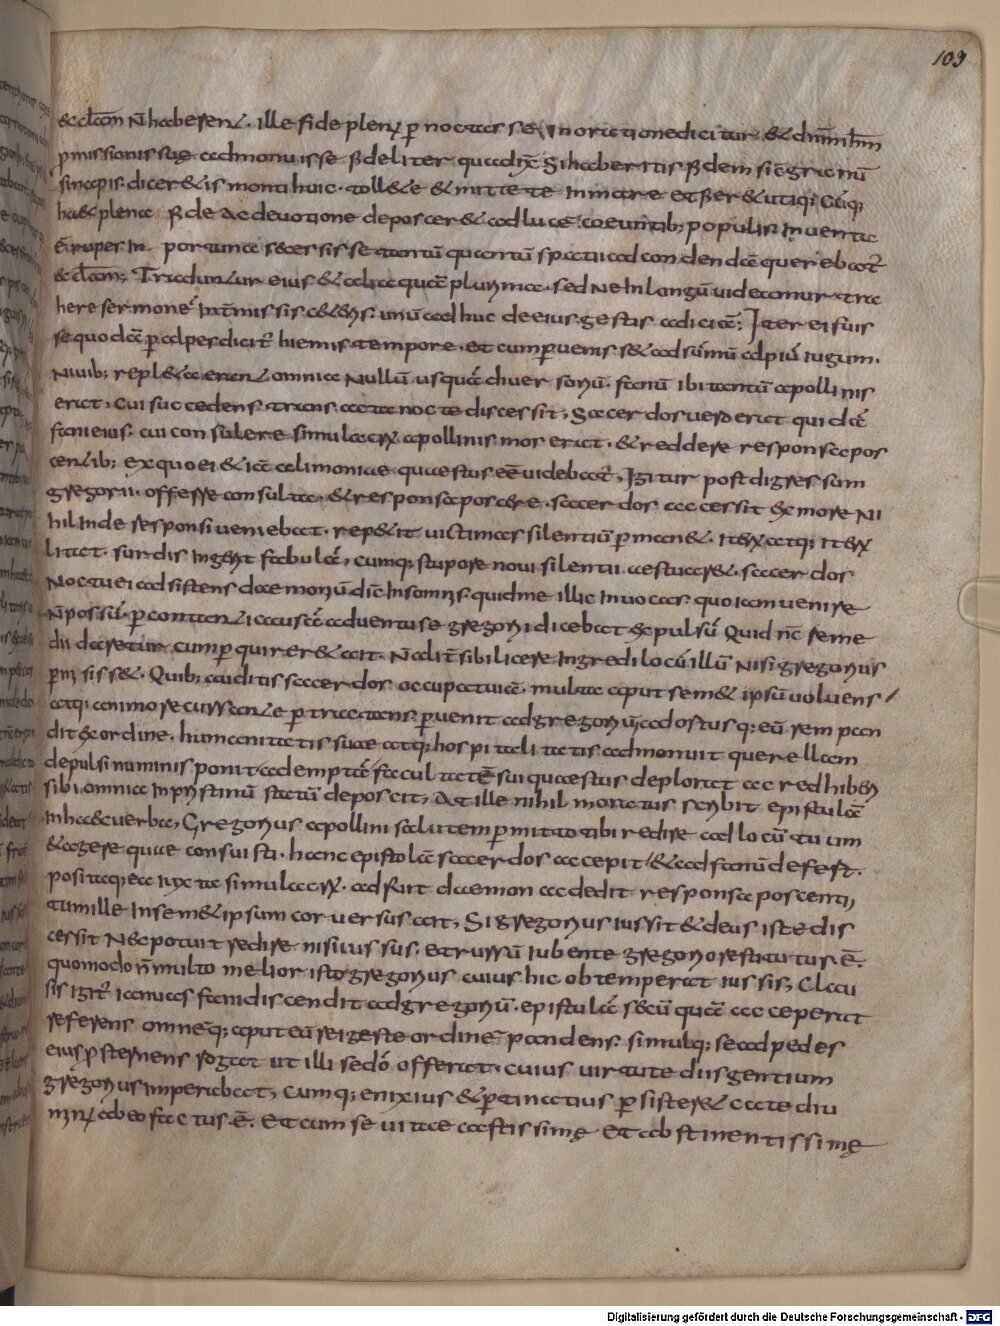 109
& ecclam n̄ haberent. ille fide plenus p̄noctasse in oratione dicitur & dnm ihm
pmissionis suę admonuisse fideliter qua dix̄ Si habertis fidem sic granū
sinapis diceretis monti huic. tollere & mitte te in mare et fier& utiq; Cūq;
haec plena fide ac devotione deposcer& ad lucē coeuntib; populis inventa
ē rupes in portuna secessisse tantū quantū spatii ad condendā querebat̄
ecclam; Traduntur eius & aliae quā plurimae. sed ne in longū uideamur tra
here sermonē intmissis ceteris. unū adhuc de eius gestis adiciā; Iter ei fuis
se quodā p alpes dicit̄ hiemis tempore. et cum puenisset ad sūmū alpiū iugum.
nivib; repleta erant omnia nullū usquā diversoriū. fanū ibi tantū apollinis
erat, cui succedens transacta nocte discessit; Sacerdos vero erat qui dā
fani eius. cui consulere simulacrū apollinis mos erat. & reddere responsa pos
centib; ex quo ei & iā alimoniae quaestus eē videbat̄, Igitur post digressum
gregorii. offerre consulta. & responsa poscere. sacerdos accessit ex more ni
hil inde responsi veniebat. repetit uictimas silentiū pman&. iterū atq; iterū
litat. surdis ingerit fabulā, cumq; stupore novi silentii aestuar&. sacerdos
noctu ei adsistens daemoniū dīc in somnis. quid me illic inuocas quo iam venire
n̄ possū. pcontanti causā adventu se gregorii dicebat expulsū. Quid nc reme
dii daretur cum pquirer& ait. N̄ alit̄ sibi licere ingredi locū illū nisi gregorius
pmisisset. Quib; auditis sacerdos occupat viā. multa aput semet ipsū voluens
atq; animo recursante ptractans. pvenit ad gregoriū, ad ostusq; eū rem pan
dit ex ordine. humanitatis suae atq; hospitalitatis admonuit querellam
depulsi numinis ponit ademptā facultatē sui quaestus deplorat ac redhiberi
sibi omnia in pristinū statū deposcit, At ille nihil moratus scribit epistulā
in haec verba, Gregorius apollini salutem pmitto tibi redire ad locū tuum
& agere quae consuisti. hanc epistolā sacerdos accepit & ad fanū defert.
positaq; ea iuxta simulacrū. adfuit daemon ac dedit responsa poscenti,
tum ille in semet ipsum conversus ait, Si gregorius iussit & deus iste dis
cessit nec potuit redire nisi iussus. et rursū iubente gregorio restitutus ē.
quomodo n̄ multo melior isto gregorius cuius hic obtemperat iussis, Clau
sis igit̄ ianuas fani discendit ad gregoriū. epistulā secū quā acceperat
referens omnēq; aput eū rei gestę ordinē pandens simulq; se ad pedes
eius psternens rogat ut illi se dō offerrat. cuius virtute diis gentium
gregorius imperabat, Cumq; enixius & ptinatius psister& catechu
minus ab eo factus ē. Et cum se vitae castissimę et abstinentissimę
Digitalisierung gefördert durch die Deutsche Forschungsgemeinschaft - DFG